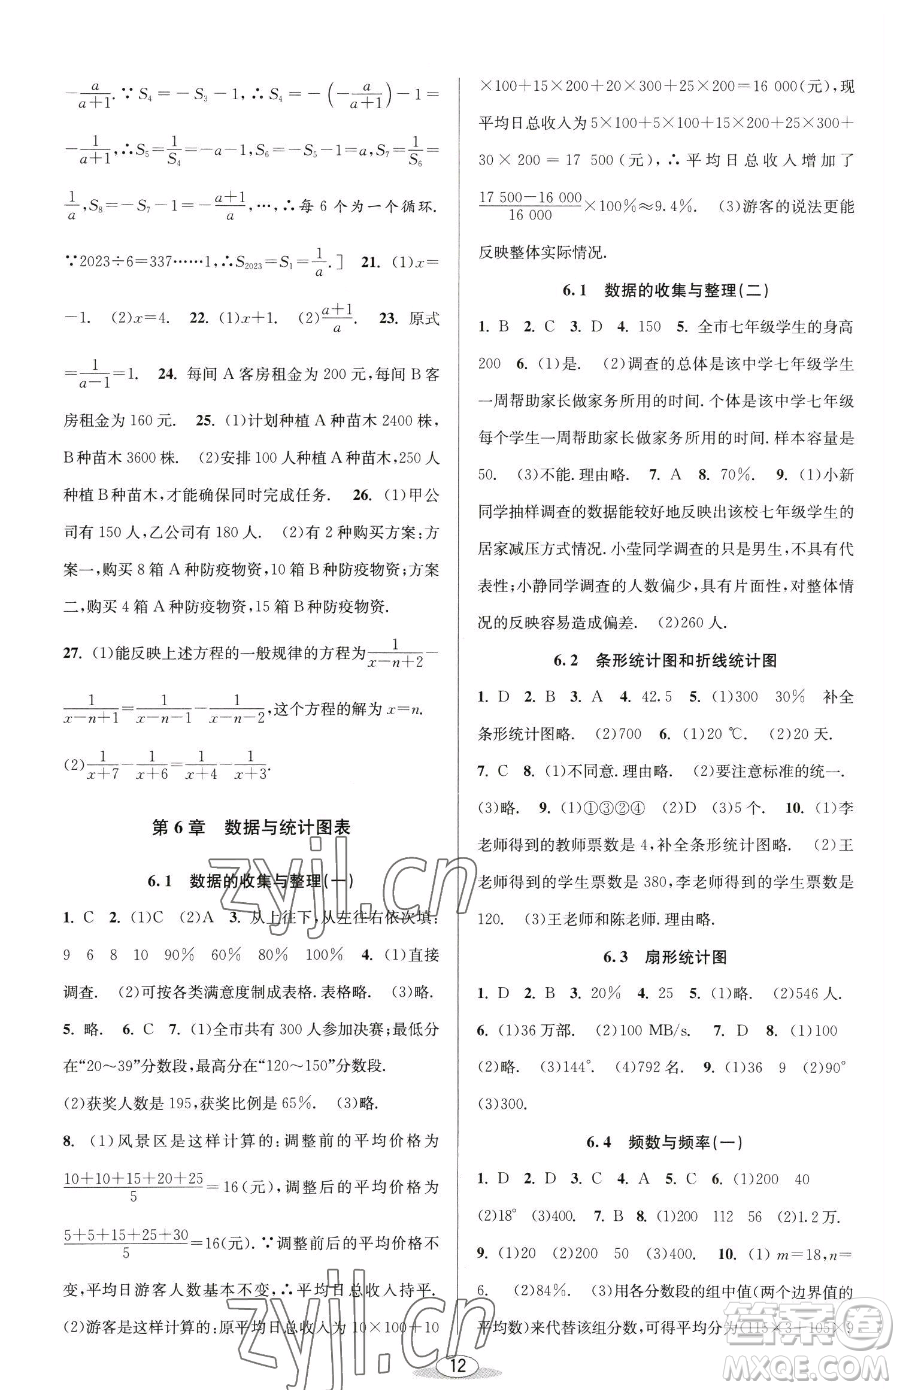 −a/(a+1).∵S₄=−S₃−1,∴S₄=−(−a/(a+1))−1=
−1/(a+1),∴S₅=1/S₄=−a−1,∴S₆=−S₅−1=a,∴S₇=1/S₆=
1/a,S₈=−S₇−1=−(a+1)/a,…,∴每 6 个为一个循环.
∵2023÷6=337……1,∴S₂₀₂₃=S₁=1/a.] 21. (1)x=
−1. (2)x=4. 22. (1)x+1. (2)(a+1)/a. 23. 原式
=a/(a−1)=1. 24. 每间 A 客房租金为 200 元,每间 B 客
房租金为 160 元. 25. (1)计划种植 A 种苗木 2400 株,
B 种苗木 3600 株. (2)安排 100 人种植 A 种苗木,250 人
种植 B 种苗木,才能确保同时完成任务. 26. (1)甲公
司有 150 人,乙公司有 180 人. (2)有 2 种购买方案:方
案一,购买 8 箱 A 种防疫物资,10 箱 B 种防疫物资;方案
二,购买 4 箱 A 种防疫物资,15 箱 B 种防疫物资.
27. (1)能反映上述方程的一般规律的方程为1/(x−n+2)−
1/(x−n+1)=1/(x−n−1)−1/(x−n−2),这个方程的解为 x=n.
(2)1/(x+7)−1/(x+6)=1/(x+4)−1/(x+3).
第 6 章 数据与统计图表
6.1 数据的收集与整理(一)
1. C 2. (1)C (2)A 3. 从上往下,从左往右依次填:
9 6 8 10 90% 60% 80% 100% 4. (1)直接
调查. (2)可按各类满意度制成表格.表格略. (3)略.
5. 略. 6. C 7. (1)全市共有 300 人参加决赛;最低分
在“20～39”分数段,最高分在“120～150”分数段.
(2)获奖人数是 195,获奖比例是 65%. (3)略.
8. (1)风景区是这样计算的:调整前的平均价格为
(10+10+15+20+25)/5=16(元),调整后的平均价格为
(5+5+15+25+30)/5=16(元).∵调整前后的平均价格不
变,平均日游客人数基本不变,∴平均日总收入持平.
(2)游客是这样计算的:原平均日总收入为 10×100+10
×100+15×200+20×300+25×200=16 000(元),现
平均日总收入为 5×100+5×100+15×200+25×300+
30×200=17 500(元),∴平均日总收入增加了
(17 500−16 000)/16 000×100%≈9.4%. (3)游客的说法更能
反映整体实际情况.
6.1 数据的收集与整理(二)
1. B 2. C 3. D 4. 150 5. 全市七年级学生的身高
200 6. (1)是. (2)调查的总体是该中学七年级学生
一周帮助家长做家务所用的时间.个体是该中学七年级
每个学生一周帮助家长做家务所用的时间.样本容量是
50. (3)不能.理由略. 7. A 8. 70%. 9. (1)小新
同学抽样调查的数据能较好地反映出该校七年级学生的
居家减压方式情况.小莹同学调查的只是男生,不具有代
表性;小静同学调查的人数偏少,具有片面性,对整体情
况的反映容易造成偏差. (2)260 人.
6.2 条形统计图和折线统计图
1. D 2. B 3. A 4. 42.5 5. (1)300 30% 补全
条形统计图略. (2)700 6. (1)20 ℃. (2)20 天.
7. C 8. (1)不同意.理由略. (2)要注意标准的统一.
(3)略. 9. (1)①③②④ (2)略. (3)5% 10. (1)李
老师得到的教师票数是 4,补全条形统计图略. (2)王
老师得到的学生票数是 380,李老师得到的学生票数是
120. (3)王老师和陈老师.理由略.
6.3 扇形统计图
1. D 2. B 3. 20% 4. 25 5. (1)略. (2)546 人.
6. (1)36 万部. (2)100 MB/s. 7. D 8. (1)100
(2)略. (3)144° (4)792 名. 9. (1)36 9
(3)300.
6.4 频数与频率(一)
1. D 2. D 3. B 4. B 5. C 6. (1)200 40
(2)18° (3)400. 7. B 8. (1)200 112 56 (2)1.2 万.
9. (1)0.2 (2)10 (3)略. 10. (1) m=18,n=
6. (2)84% (3)用各分数段的组中值(两个边界值的
平均数)来代替该组分数,可得平均分为(115×3+105×9
12
zyjl.cn
zyjl.cn
答案圈
MXQE.COM